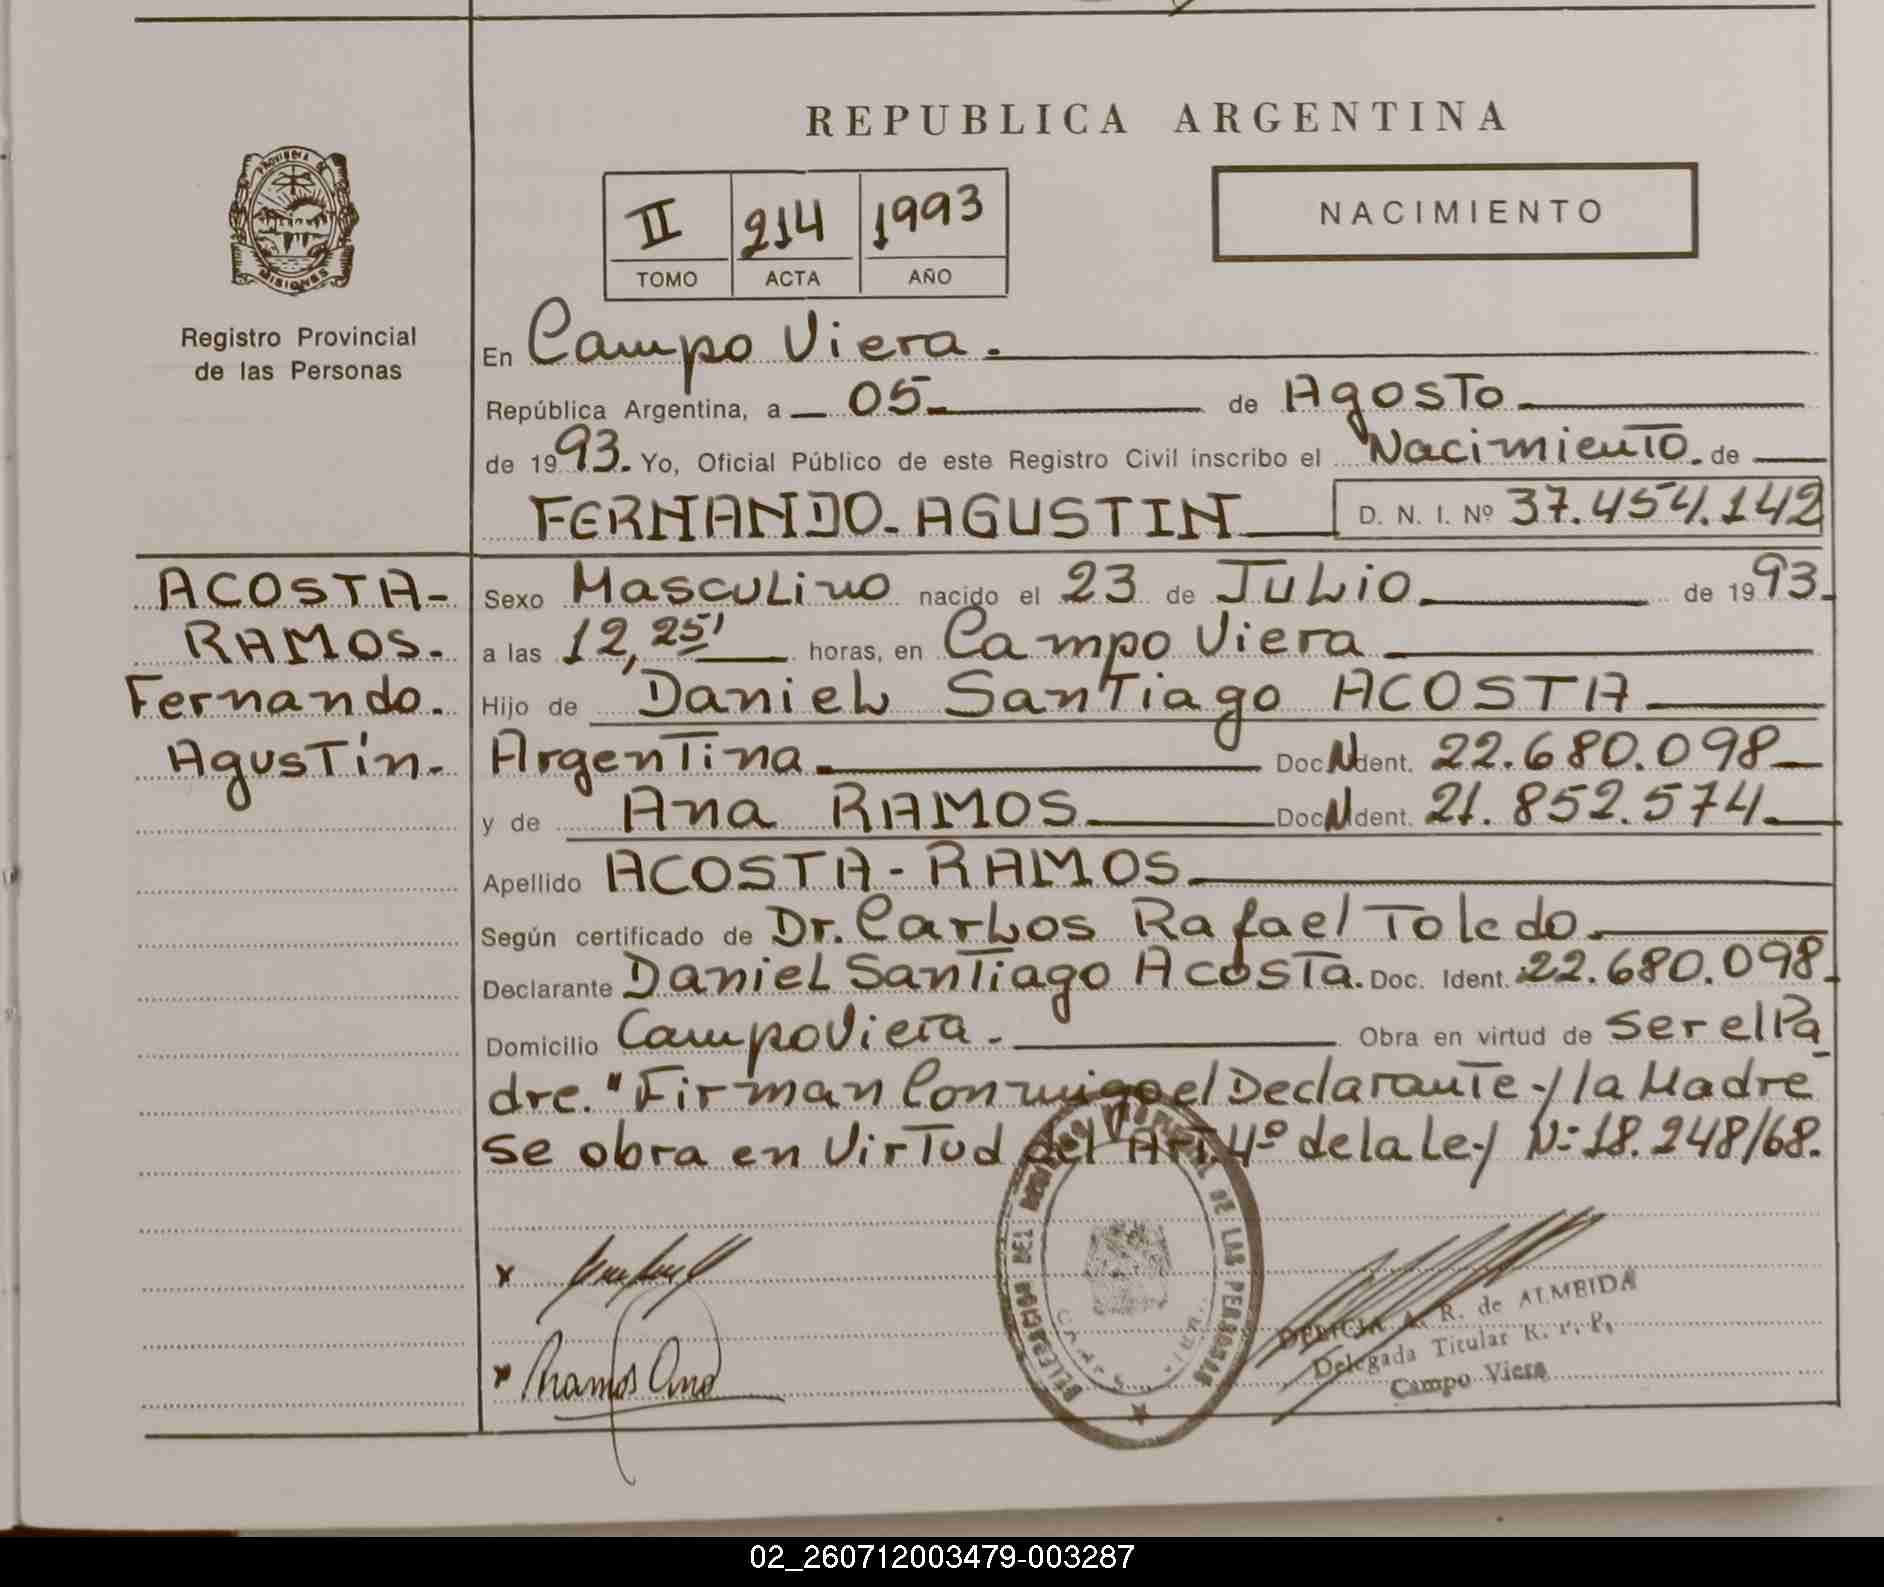 REPUBLICA ARGENTINA
PROVINCIA DE
MISIONES
Registro Provincial
de las Personas
II 214 1993
TOMO ACTA AÑO
NACIMIENTO
En Campo Viera.
República Argentina, a 05 de Agosto
de 1993. Yo, Oficial Público de este Registro Civil inscribo el Nacimiento. de
FERNANDO-AGUSTIN D. N. I. Nº 37.454.142
ACOSTA-
RAMOS.
Fernando.
Agustín-
Sexo Masculino nacido el 23 de Julio de 1993.
a las 12,25' horas, en Campo Viera
Hijo de Daniel Santiago ACOSTA
Argentina. Doc. N Ident. 22.680.098
y de Ana RAMOS Doc. N Ident. 21.852.574.
Apellido ACOSTA-RAMOS
Según certificado de Dr. Carlos Rafael Toledo.
Declarante Daniel Santiago Acosta. Doc. Ident. 22.680.098.
Domicilio Campo Viera. Obra en virtud de ser el Pa
dre. "Firman Conmigo el Declarante y la Madre
se obra en Virtud del Art. 4º de la Ley Nº 18.248/68.
x
x Ramos Ana
DELEGACION DEL REGISTRO PROVINCIAL DE LAS PERSONAS
DELICIA A. R. de ALMEIDA
Delegada Titular R. P. P.
Campo Viera
02_260712003479-003287